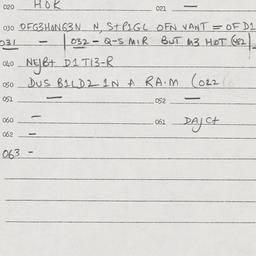 020 HOK 021 —
030 OFG3HONG3N N, S+P1GL OFN VANT = OF D1
031 — 032 - Q-S MIR BUT M3 HOT (42)
040 NEJB+ D1 T13-R
050 DUS B1LD2 1N A RA.M (022
051 — 052 —
060 — 061 DAJC+
062 —
063 -